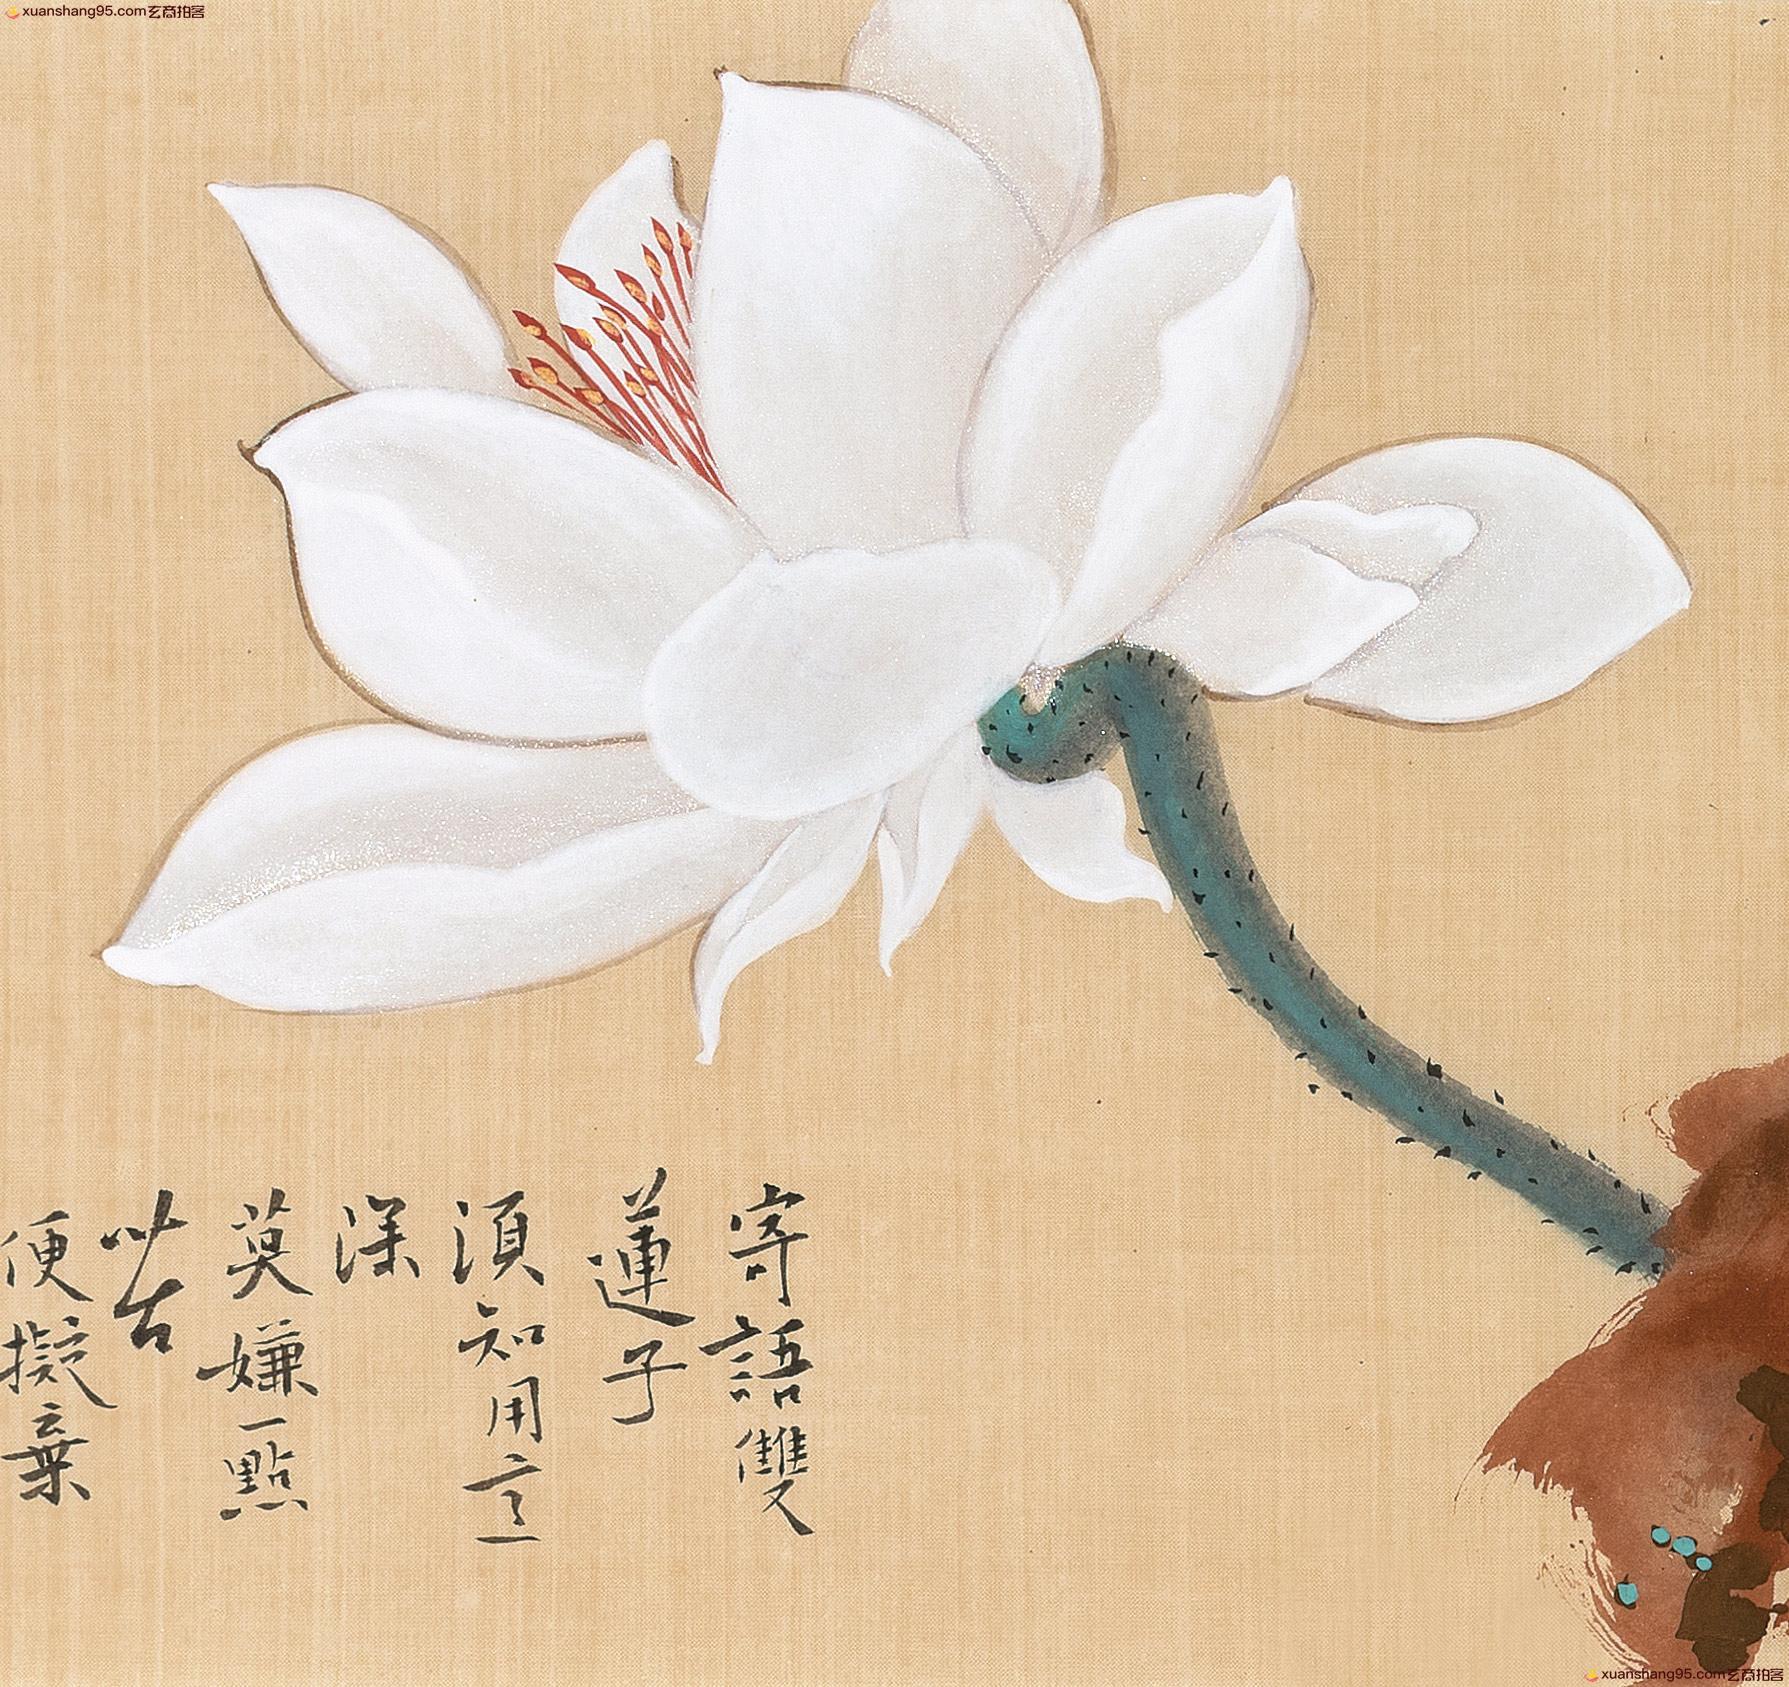 xuanshang95.com玄商拍客
寄語雙
蓮子
湏知用意
深
莫嫌一點
苦
便擬棄
xuanshang95.com玄商拍客